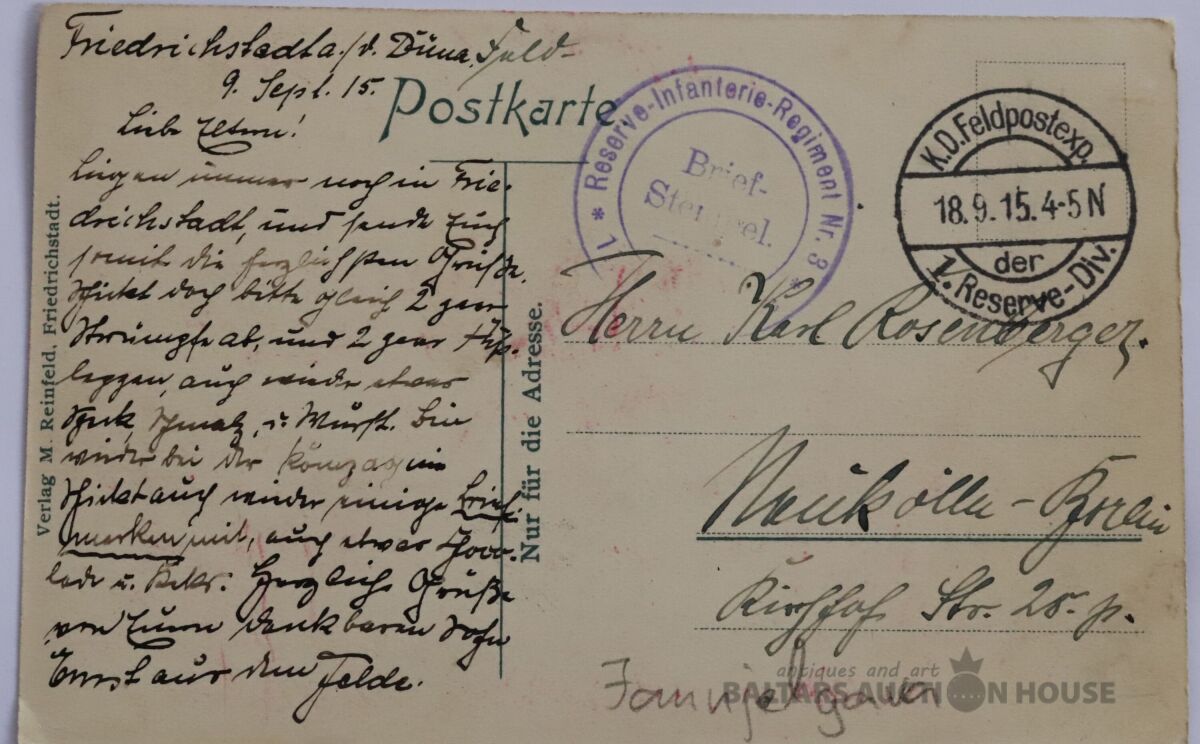 Friedrichstadt a./d. Düna, Feld-
9. Sept. 15.
Liebe Eltern!
Liegen immer noch in Frie-
drichstadt, und sende Euch
somit die herzlichsten Grüße.
Schickt doch bitte gleich 2 paar
Strümpfe ab, und 2 paar Fuß-
lappen, auch wieder etwas
Speck, Schmalz, u. Wurst. Bin
wieder bei der
Schickt auch wieder einige Brief-
marken mit, auch etwas Schoco-
lade u. Keks. Herzliche Grüße
von Eurem dankbaren Sohn
Ernst aus dem Felde.
Verlag M. Reinfeld, Friedrichstadt.
Postkarte
Nur für die Adresse.
1 * Reserve-Infanterie-Regiment Nr. 3 *
Brief-
Stempel.
K.D. Feldpostexp.
18.9.15. 4-5 N
der
1/. Reserve-Div.
Herrn Karl Rosenberger.
Neukölln-Berlin
Kirchhof Str. 25. p.
antiques and art
BALTARS AUCTION HOUSE